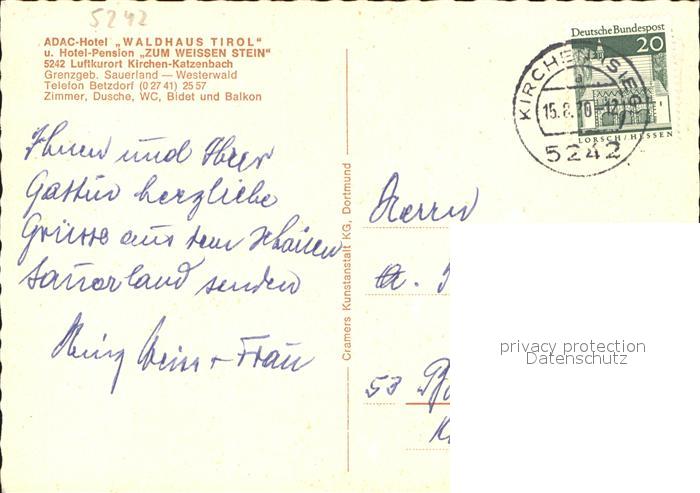 5242
ADAC-Hotel „WALDHAUS TIROL“
u. Hotel-Pension „ZUM WEISSEN STEIN“
5242 Luftkurort Kirchen-Katzenbach
Grenzgeb. Sauerland — Westerwald
Telefon Betzdorf (0 27 41) 25 57
Zimmer, Dusche, WC, Bidet und Balkon
Ihnen und Ihrer
Gattin herzliche
Grüsse aus dem schönen
Sauerland senden
Heinz + Frau
Cramers Kunstanstalt KG, Dortmund
Deutsche Bundespost
20
LORSCH/HESSEN
KIRCHEN (SIEG)
a
15.8.70
5242
Herrn
53
privacy protection
Datenschutz